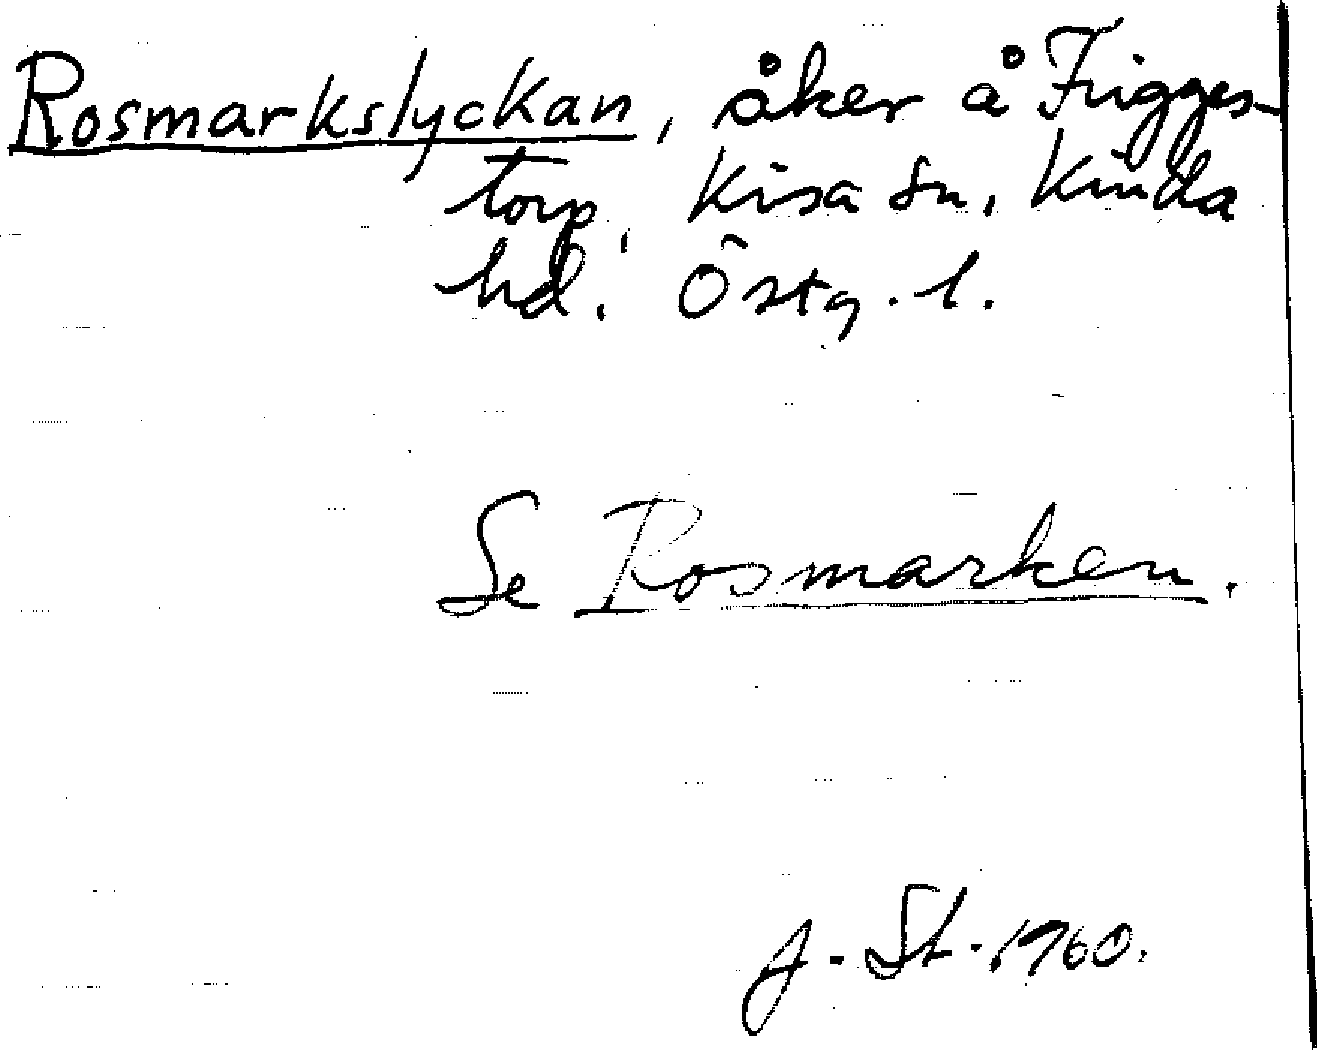 Rosmarkslyckan, åker å Frigges-
torp, Kisa sn, Kinda
hd. Östg. l.
Se Rosmarken.
J. St. 1960.